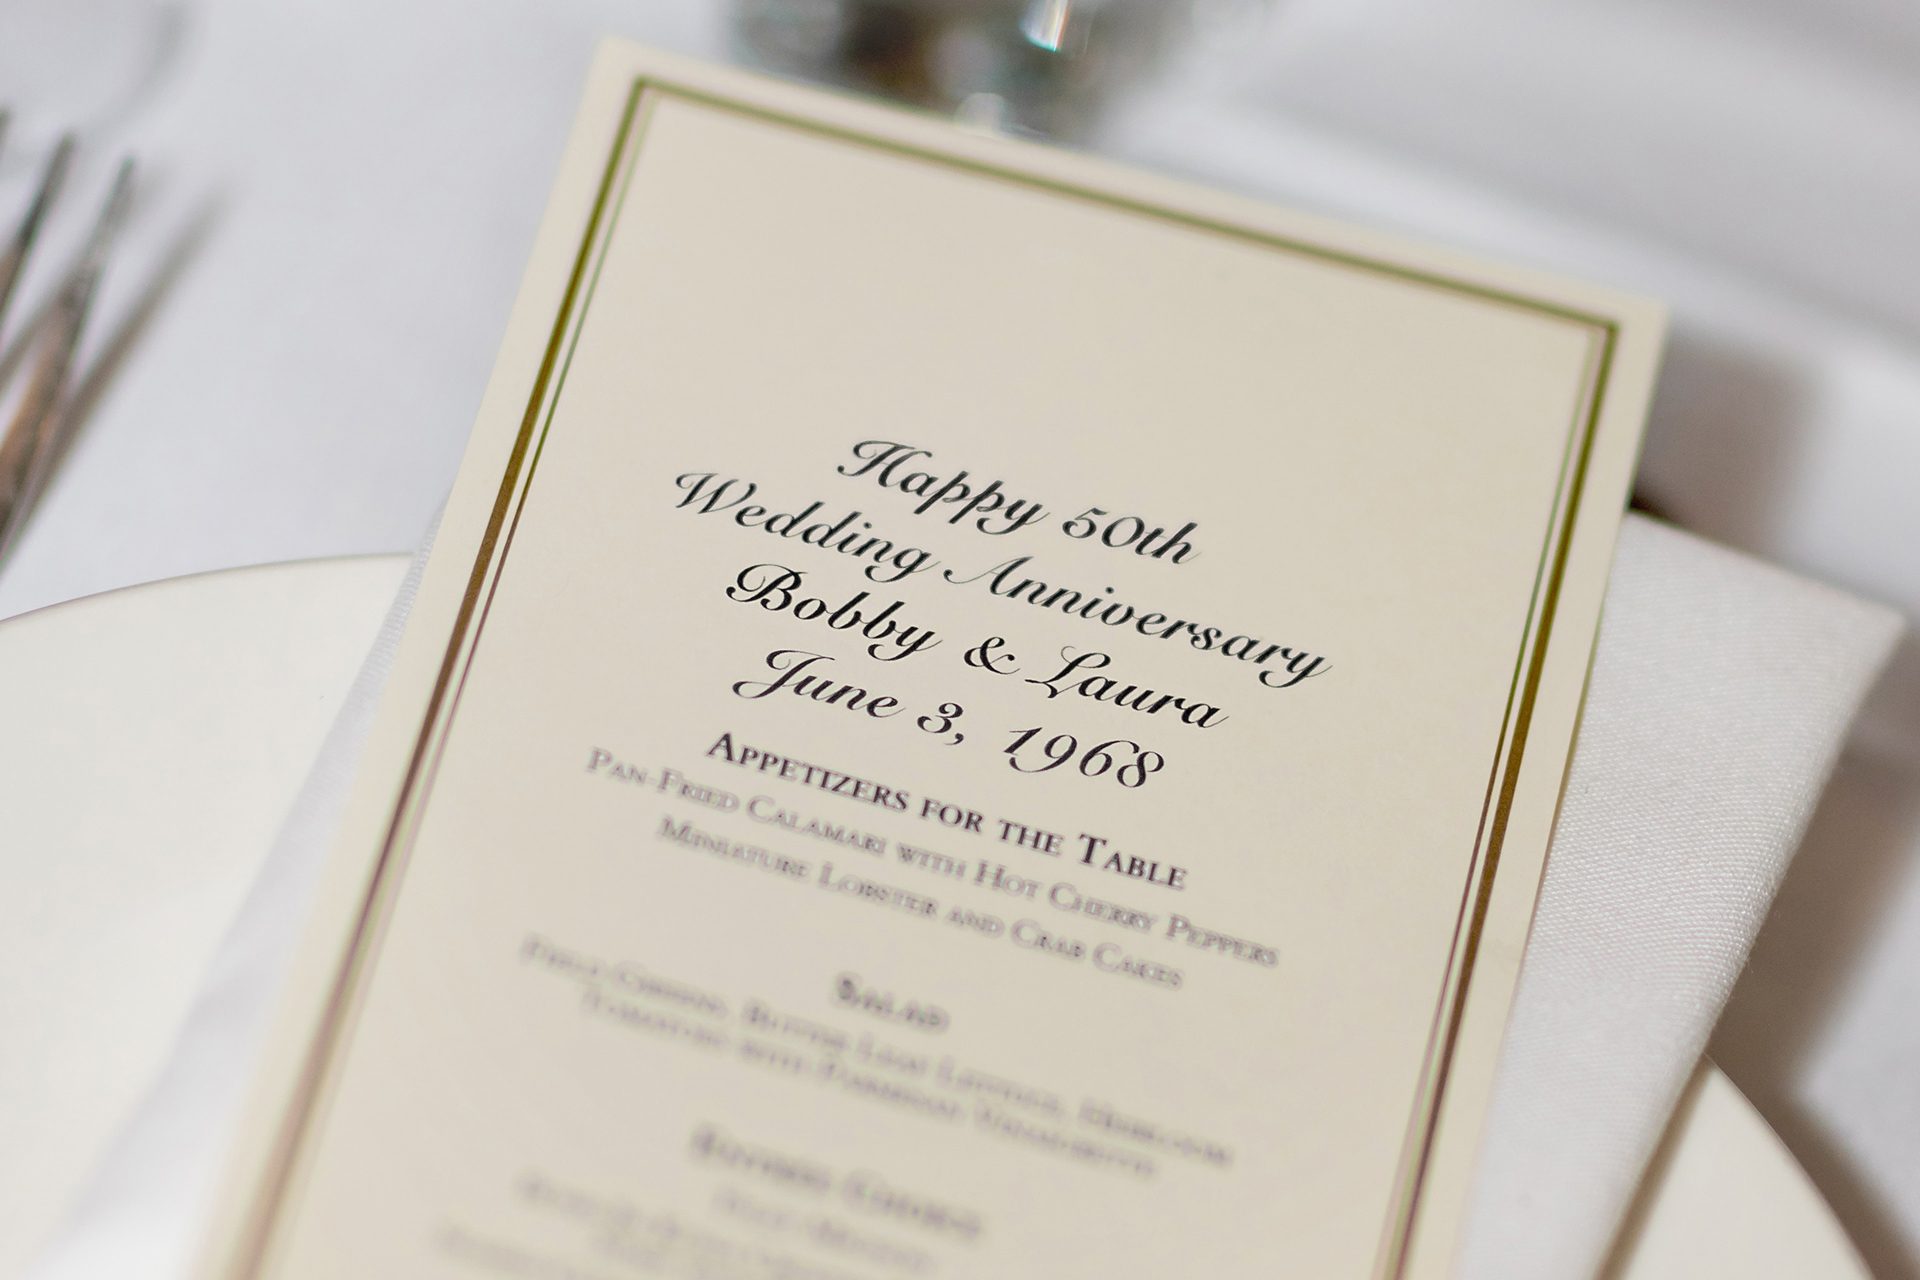 Happy 50th
Wedding Anniversary
Bobby & Laura
June 3, 1968
Appetizers for the Table
Pan-Fried Calamari with Hot Cherry Peppers
Miniature Lobster and Crab Cakes
Salad
Field Greens, Butter Leaf Lettuce, Heirloom
Tomatoes with Parmesan Vinaigrette
Entrée Choice